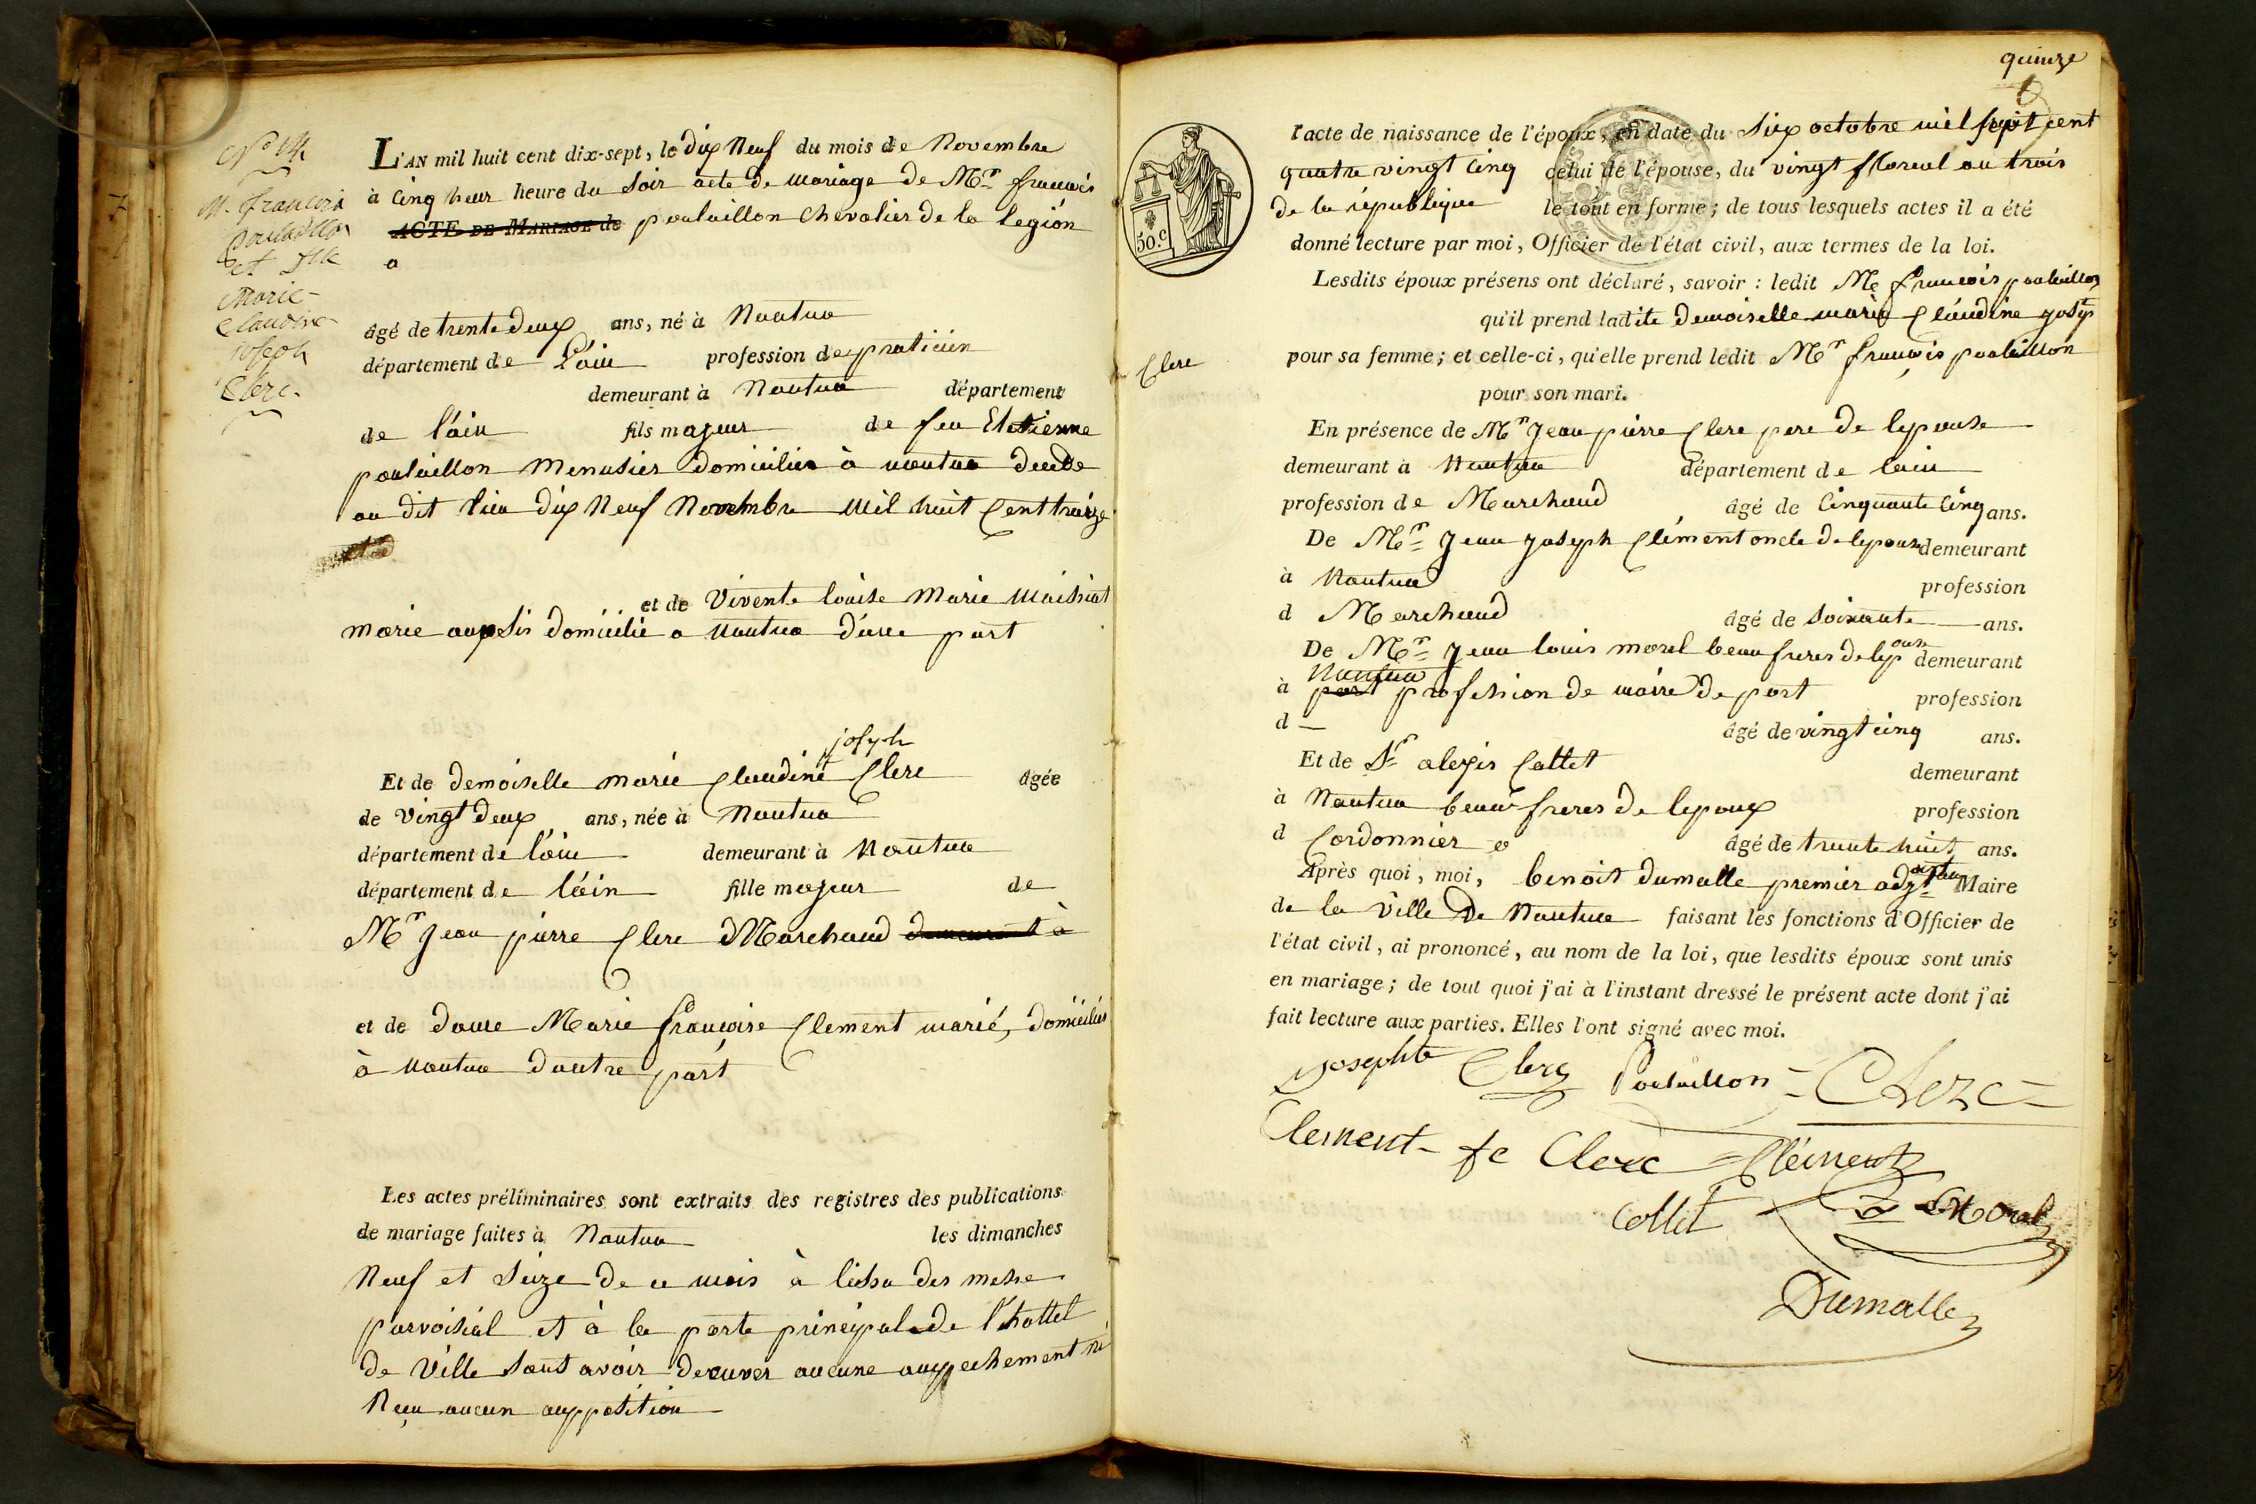 N° 14
M. françois
Poulaillon
et Dlle
Marie
Claudine
joseph
Clerc.
L'AN mil huit cent dix-sept, le dix Neuf du mois de Novembre
à Cinq heur heure du Soir acte de mariage de Mr françois
ACTE DE MARIAGE de poulaillon Chevalier de la legión
a
âgé de trente deux ans, né à Nantua
département de l'ain profession de praticien
demeurant à Nantua département
de l'ain fils majeur de feu Etienne
poulaillon Menusier domicilier à nantua decede
au dit lieu dix Neuf Novembre Mil huit Cent treize
et de Vivente louise Marie Maissiat
marie aussi domicilié a Nantua d'une part
joseph
Et de demoiselle marie Claudine Clerc âgée
de vingt deux ans, née à Nantua
département de l'ain demeurant à Nantua
département de l'ain fille majeur de
Mr jean pierre Clerc Marchand demeurant à
et de dame Marie françoise Clement marié, domiciliés
à nantua d'autre part
Les actes préliminaires sont extraits des registres des publications
de mariage faites à Nantua les dimanches
Neuf et Seize de ce mois à lissu des messe
parroisial et à la porte principale de l'hottel
de Ville sans avoir decuver aucune auppechement ni
Reçu aucun aupposition
quinze
6
50.c
l'acte de naissance de l'époux, en date du six octobre mil sept cent
quatre vingt cinq celui de l'épouse, du vingt floreal an trois
de la république le tout en forme; de tous lesquels actes il a été
donné lecture par moi, Officier de l'état civil, aux termes de la loi.
Lesdits époux présens ont déclaré, savoir : ledit Mr françois poulaillon
qu'il prend ladite demoiselle marie Claudine joseph
Clerc
pour sa femme; et celle-ci, qu'elle prend ledit Mr françois poulaillon
pour son mari.
En présence de Mr jean pierre Clerc pere de lepouse
demeurant à Nantua département de lain
profession de Marchand âgé de Cinquante Cinq ans.
De Mr jean joseph Clément oncle de lepouse demeurant
à Nantua profession
d Marchand âgé de soixante ans.
De Mr jean louis morel beau freres de lepouse demeurant
Nantua
à port profession de maire de port profession
d — âgé de vingt cinq ans.
Et de Sr alexis Collet demeurant
à Nantua beau freres de lepoux profession
d Cordonnier âgé de trente huit ans.
Après quoi, moi, benoit dumalle premier adjt Maire
de la Ville de Nantua faisant les fonctions d'Officier de
l'état civil, ai prononcé, au nom de la loi, que lesdits époux sont unis
en mariage; de tout quoi j'ai à l'instant dressé le présent acte dont j'ai
fait lecture aux parties. Elles l'ont signé avec moi.
Josephte Clerc Poulaillon Clerc
Clement fe Clerc Clément
Collet Morel
Dumalle